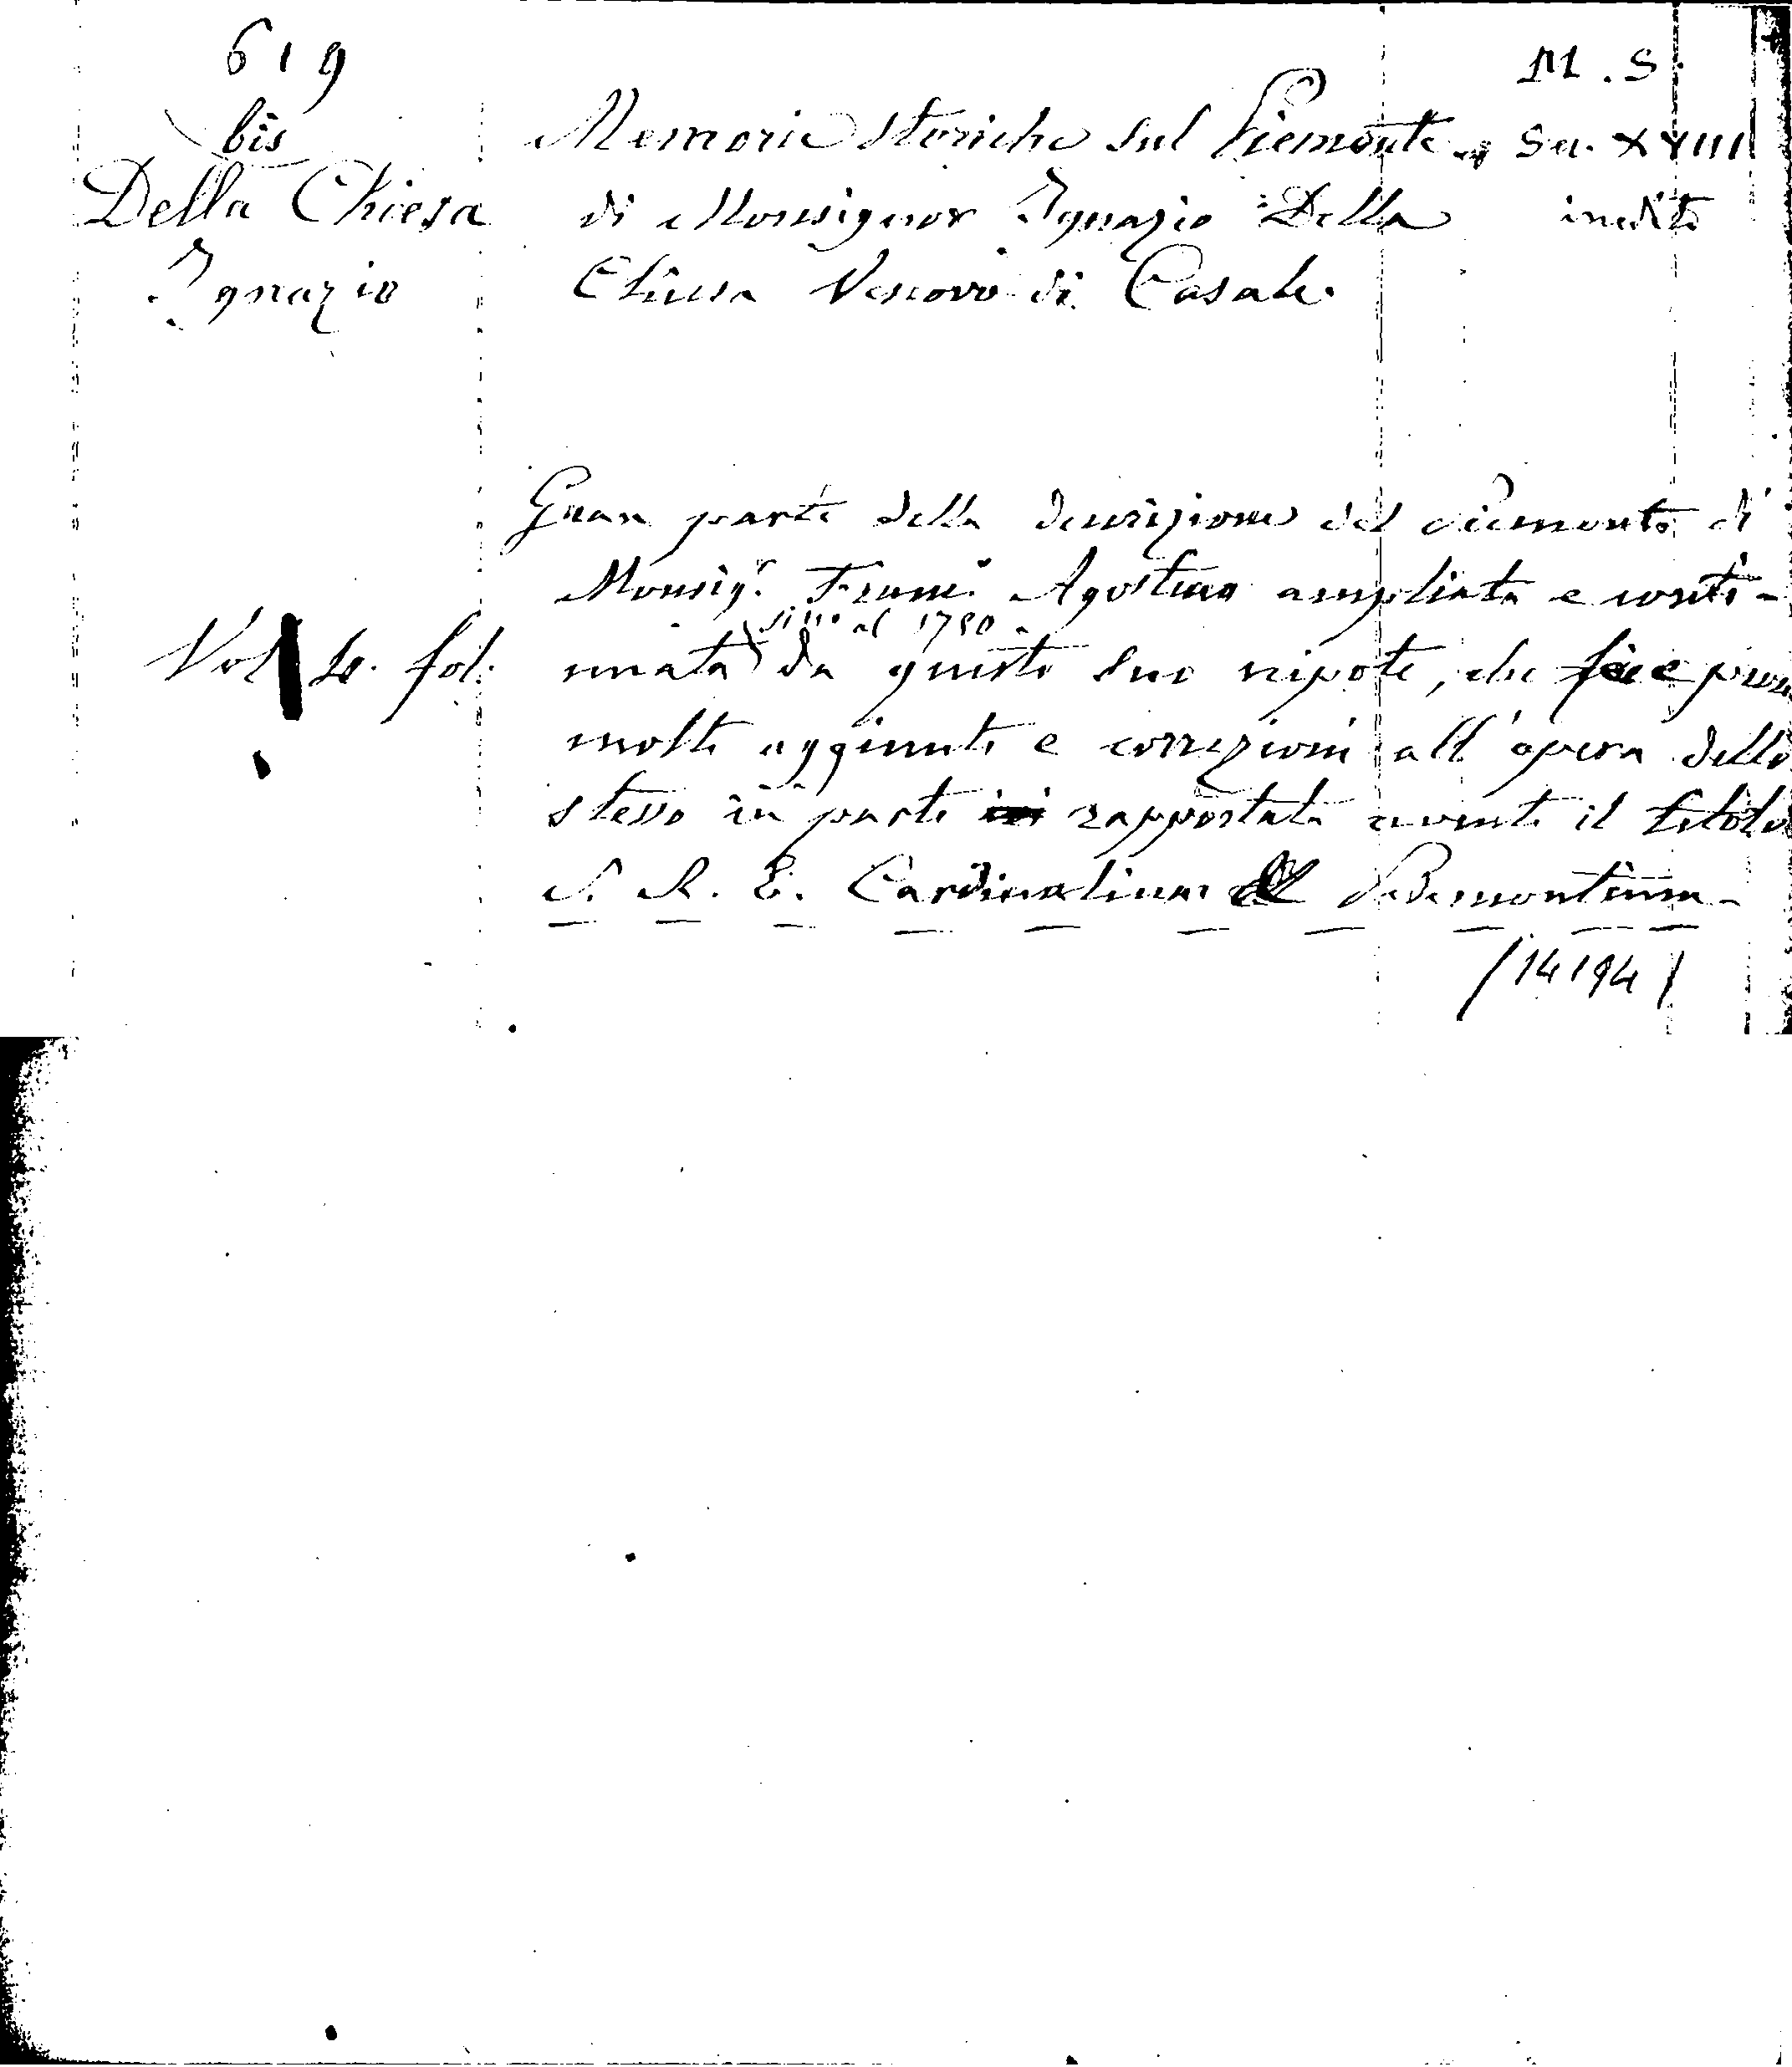 619
bis
M. S.
Della Chiesa
Ignazio
Memorie storiche sul Piemonte
Sec. XVIII
di Monsignor Ignazio Della
inedite
Chiesa Vescovo di Casale.
Gran parte della descrizione del Piemonte di
Monsigr. Franc.o Agostino ampliata e conti-
sino al 1730
nuata da questo suo nipote, che fece pure
Vol 4. fol.
molte aggiunte e correzioni all'opera dello
stesso in parte rapportata avente il titolo
S. R. E. Cardinalium Pedemontium
/14194/